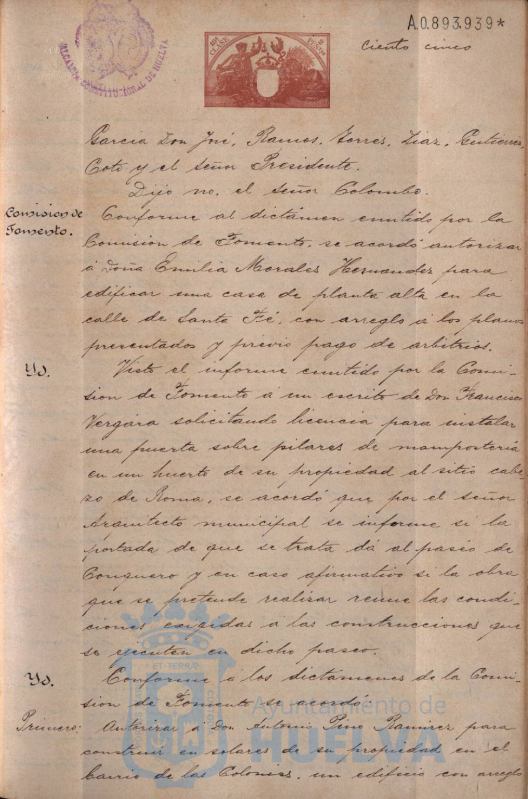 A.0.893.939*
Ciento cinco
ALCALDIA CONSTITUCIONAL DE HUELVA
García Don José, Ramos, Torres, Diaz, Gutierrez,
Coto y el señor Presidente.
Dijo no, el señor Colombo.
Comision de
Fomento.
Conforme al dictámen emitido por la
Comision de Fomento, se acordó autorizar
á Doña Emilia Morales Hernandez para
edificar una casa de planta alta en la
calle de Santa Fé, con arreglo á los planos
presentados y previo pago de arbitrios.
Yd.
Visto el informe emitido por la Comi-
sion de Fomento á un escrito de Don Francisco
Vergara solicitando licencia para instalar
una puerta sobre pilares de mamposteria
en un huerto de su propiedad al sitio cabe-
zo de Roma, se acordó que por el señor
Arquitecto municipal se informe si la
portada de que se trata dá al paseo de
Conquero y en caso afirmativo si la obra
que se pretende realizar reune las condi-
ciones exigidas á las construcciones que
se ejecuten en dicho paseo.
Yd.
Conforme á los dictámenes de la Comi-
sion de Fomento se acordó:
Primero:
Autorizar á Don Antonio Pino Ramirez para
construir en solares de su propiedad en el
barrio de las Colonias, un edificio con arreglo
Ayuntamiento de
HUELVA